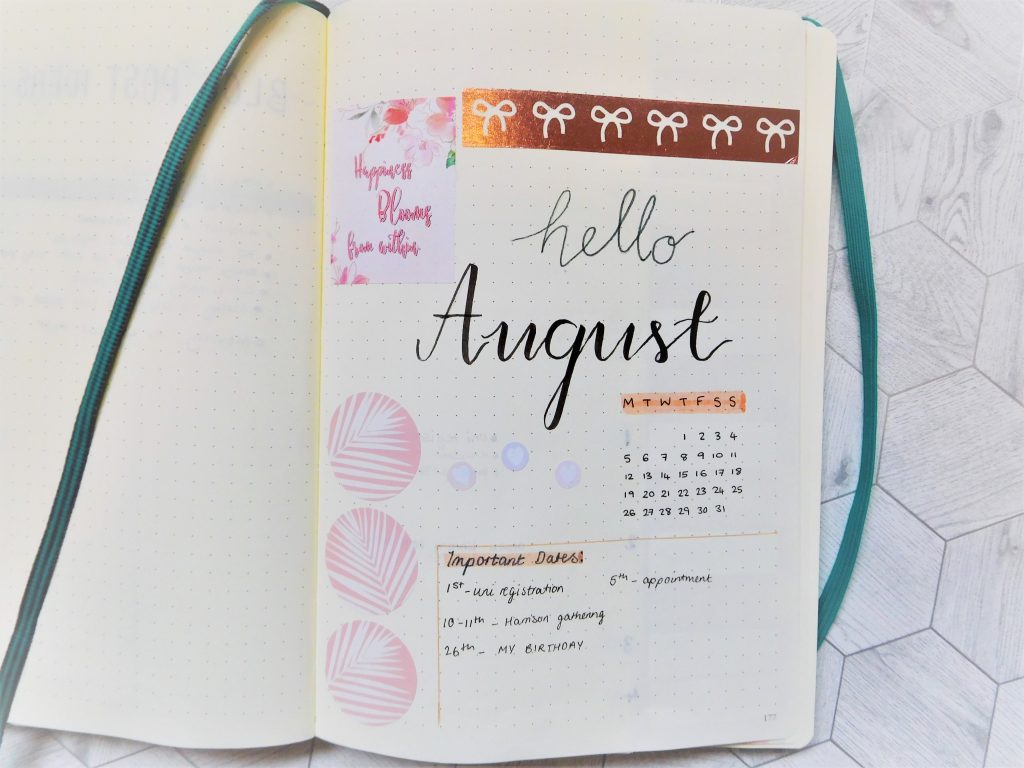 BLOG POST IDEAS
Happiness
Blooms
from within
hello
August
M T W T F S S
1 2 3 4
5 6 7 8 9 10 11
12 13 14 15 16 17 18
19 20 21 22 23 24 25
26 27 28 29 30 31
Important Dates:
1st - uni registration 5th - appointment
10-11th - Harrison gathering
26th - MY BIRTHDAY
177